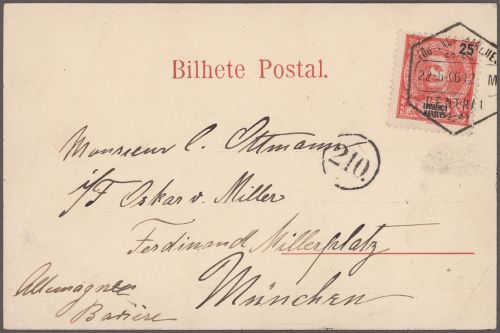 Bilhete Postal.
25
22-5-06 12 M
CENTRAL
LOURENÇO
MARQUES
Monsieur C. Ottmann
210.
i/F Oskar v. Miller
Ferdinand Millerplatz
München
Allemagne
Bavière